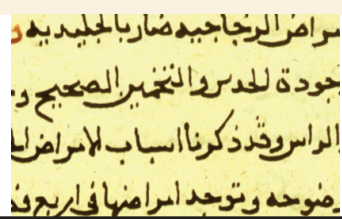 مراض الزجاجيه ضار بالجليديه و
جودة الحدس والتخمين الصحيح و
الراس وقد ذكرنا اسباب الامراض
وضوحه وتوجد امراضها في اربع